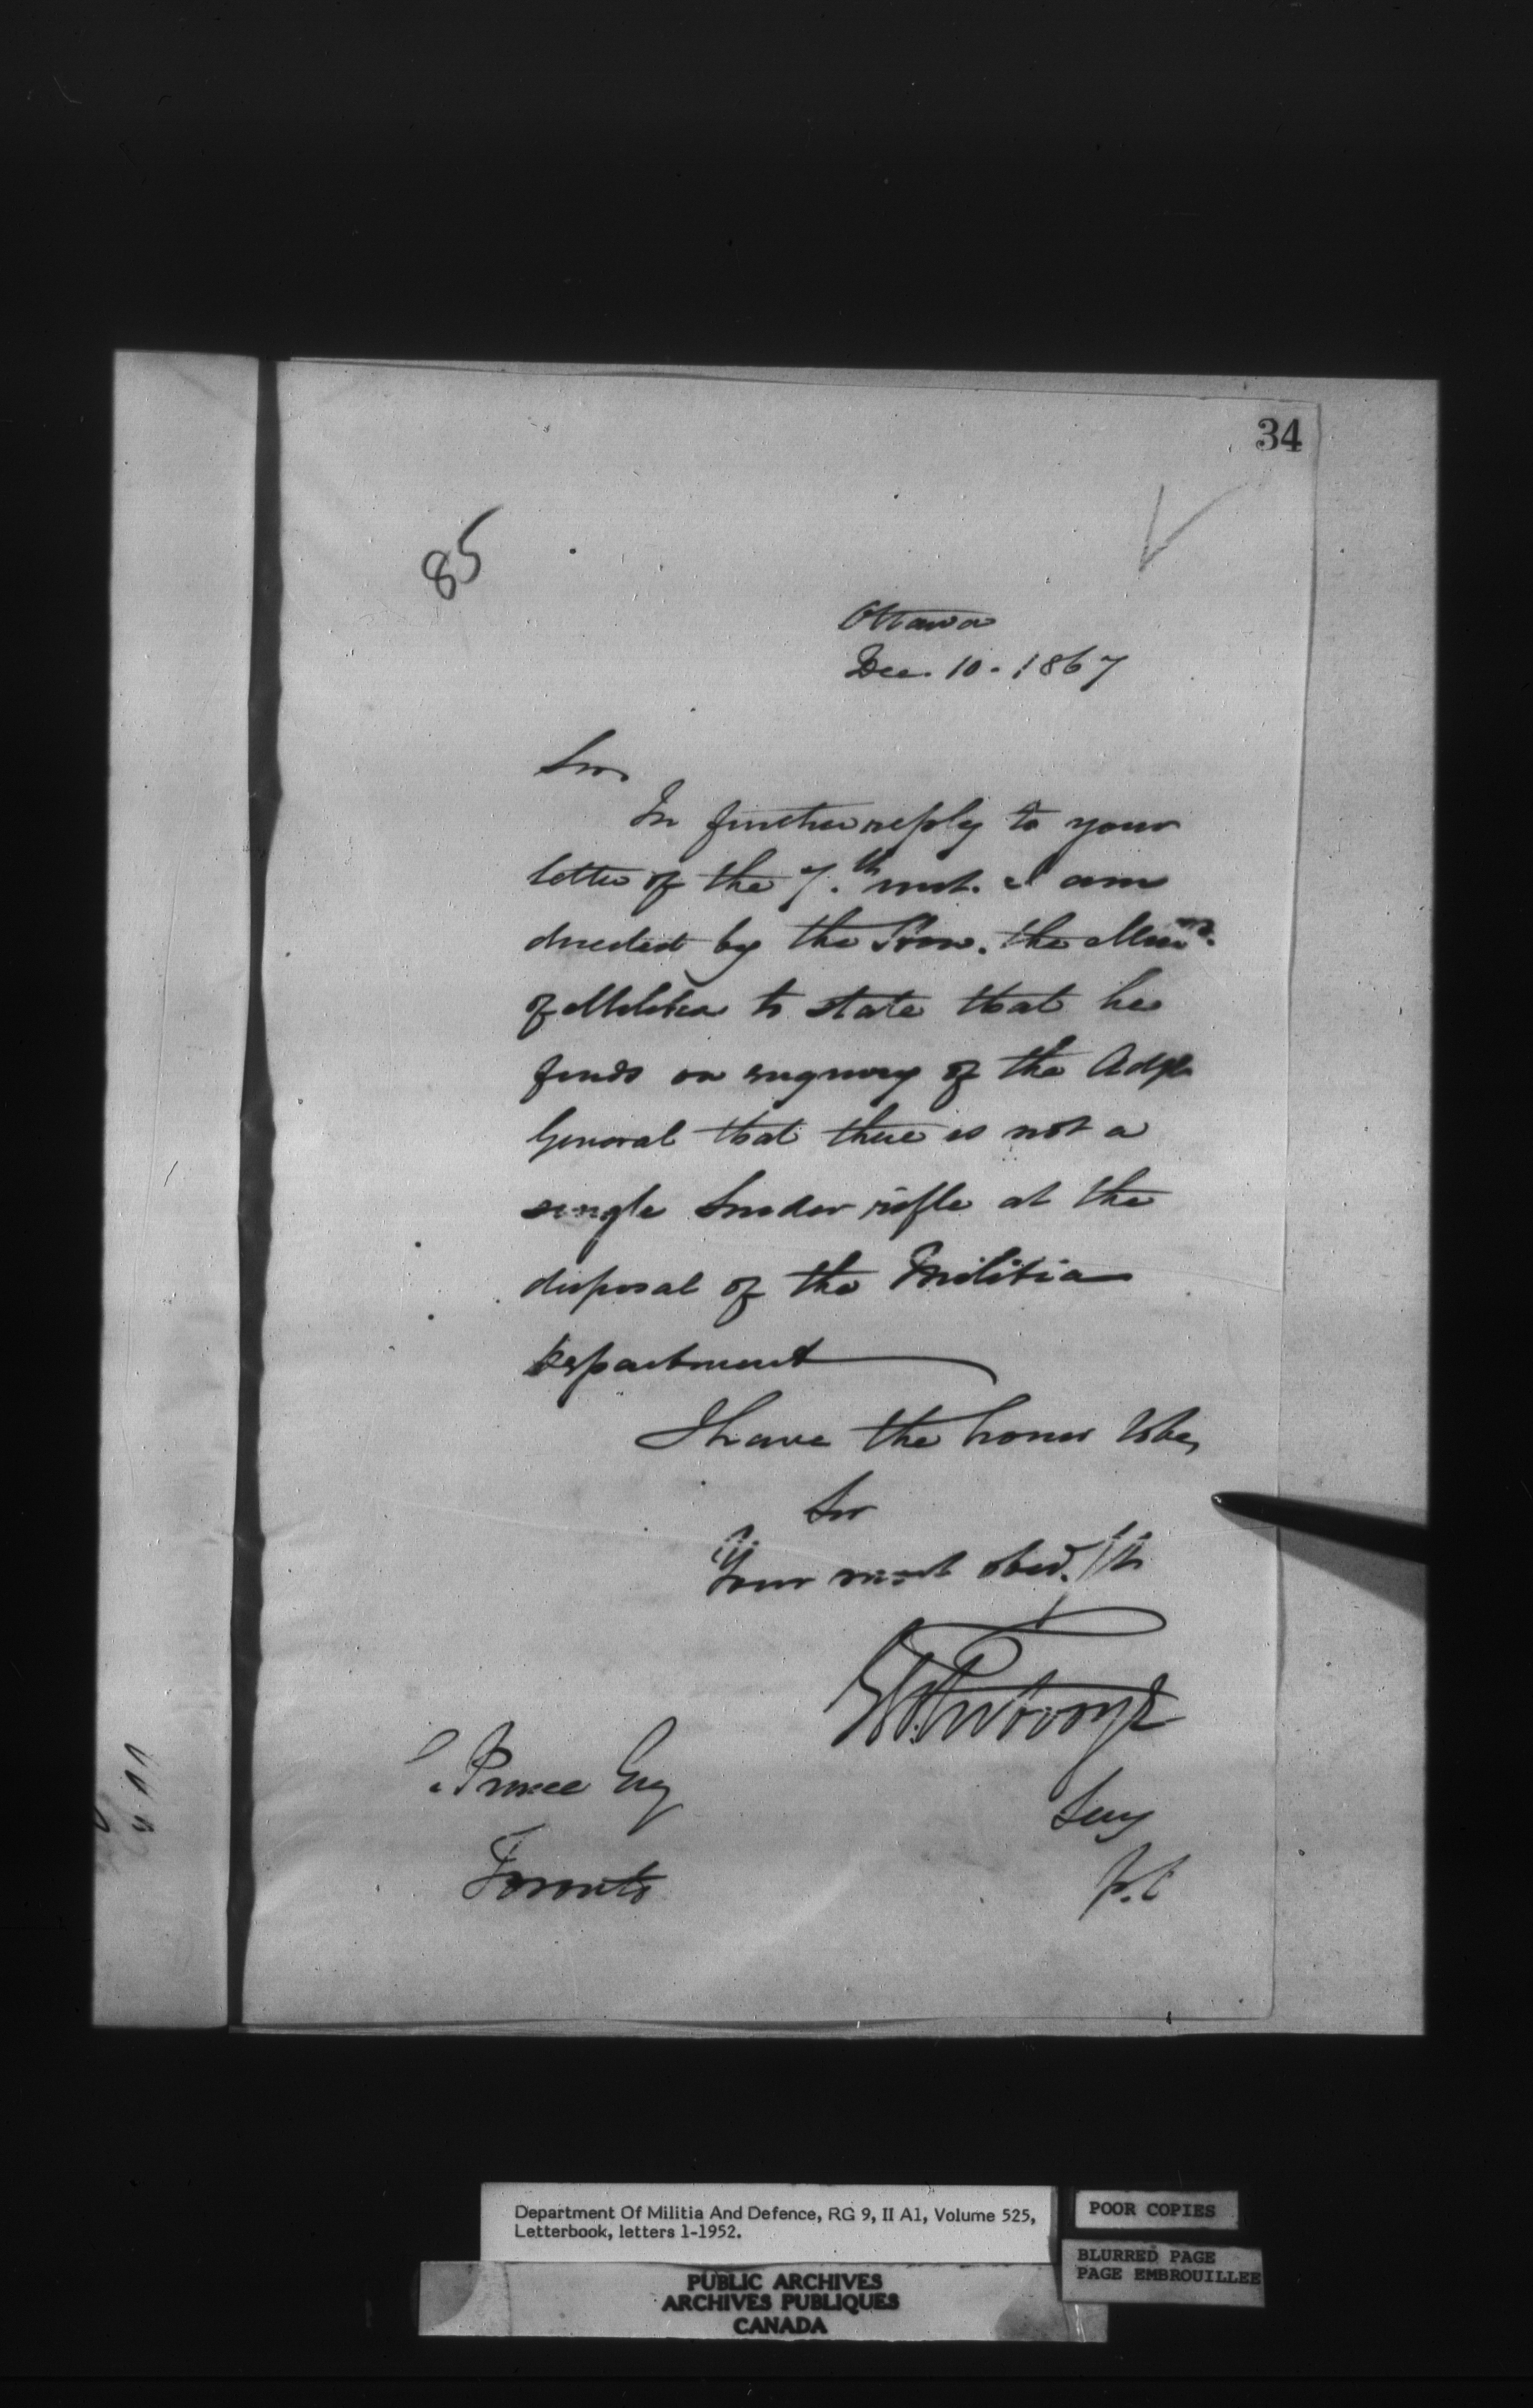 34
85
Ottawa
Dec. 10. 1867
Sir
In further reply to your
letter of the 7.th inst. I am
directed by the Hon. the Minr.
of Militia to state that he
finds on enquiry of the Adjt
General that there is not a
single Snider rifle at the
disposal of the Militia
Department
I have the honor to be,
Sir
Your most obed. St
Secy
Prince Esq
Toronto
Department Of Militia And Defence, RG 9, II A1, Volume 525,
Letterbook, letters 1-1952.
POOR COPIES
BLURRED PAGE
PAGE EMBROUILLEE
PUBLIC ARCHIVES
ARCHIVES PUBLIQUES
CANADA